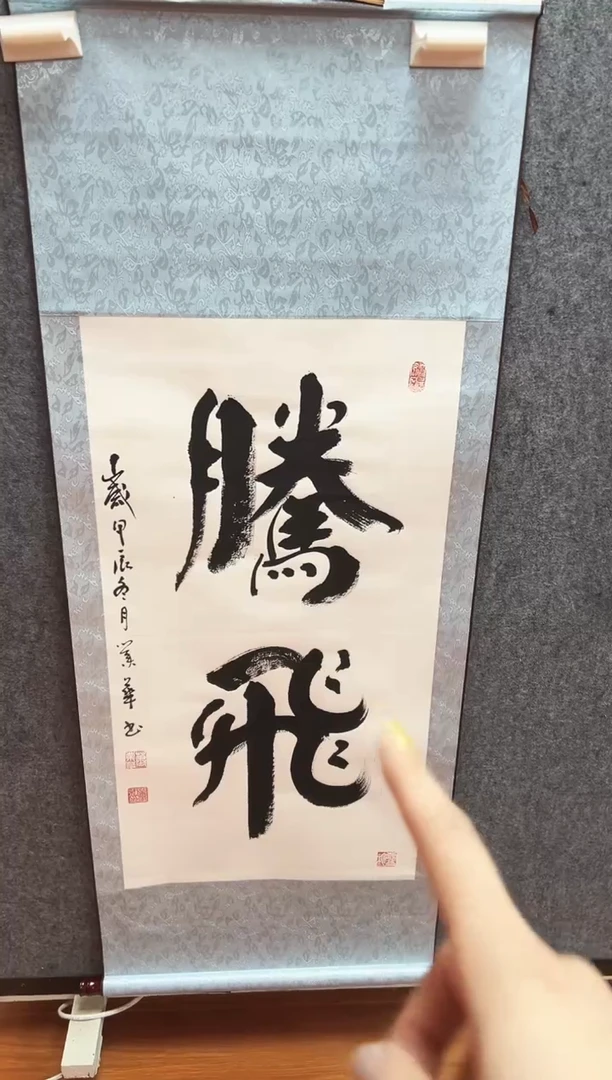 騰
飛
歲甲辰冬月業華书